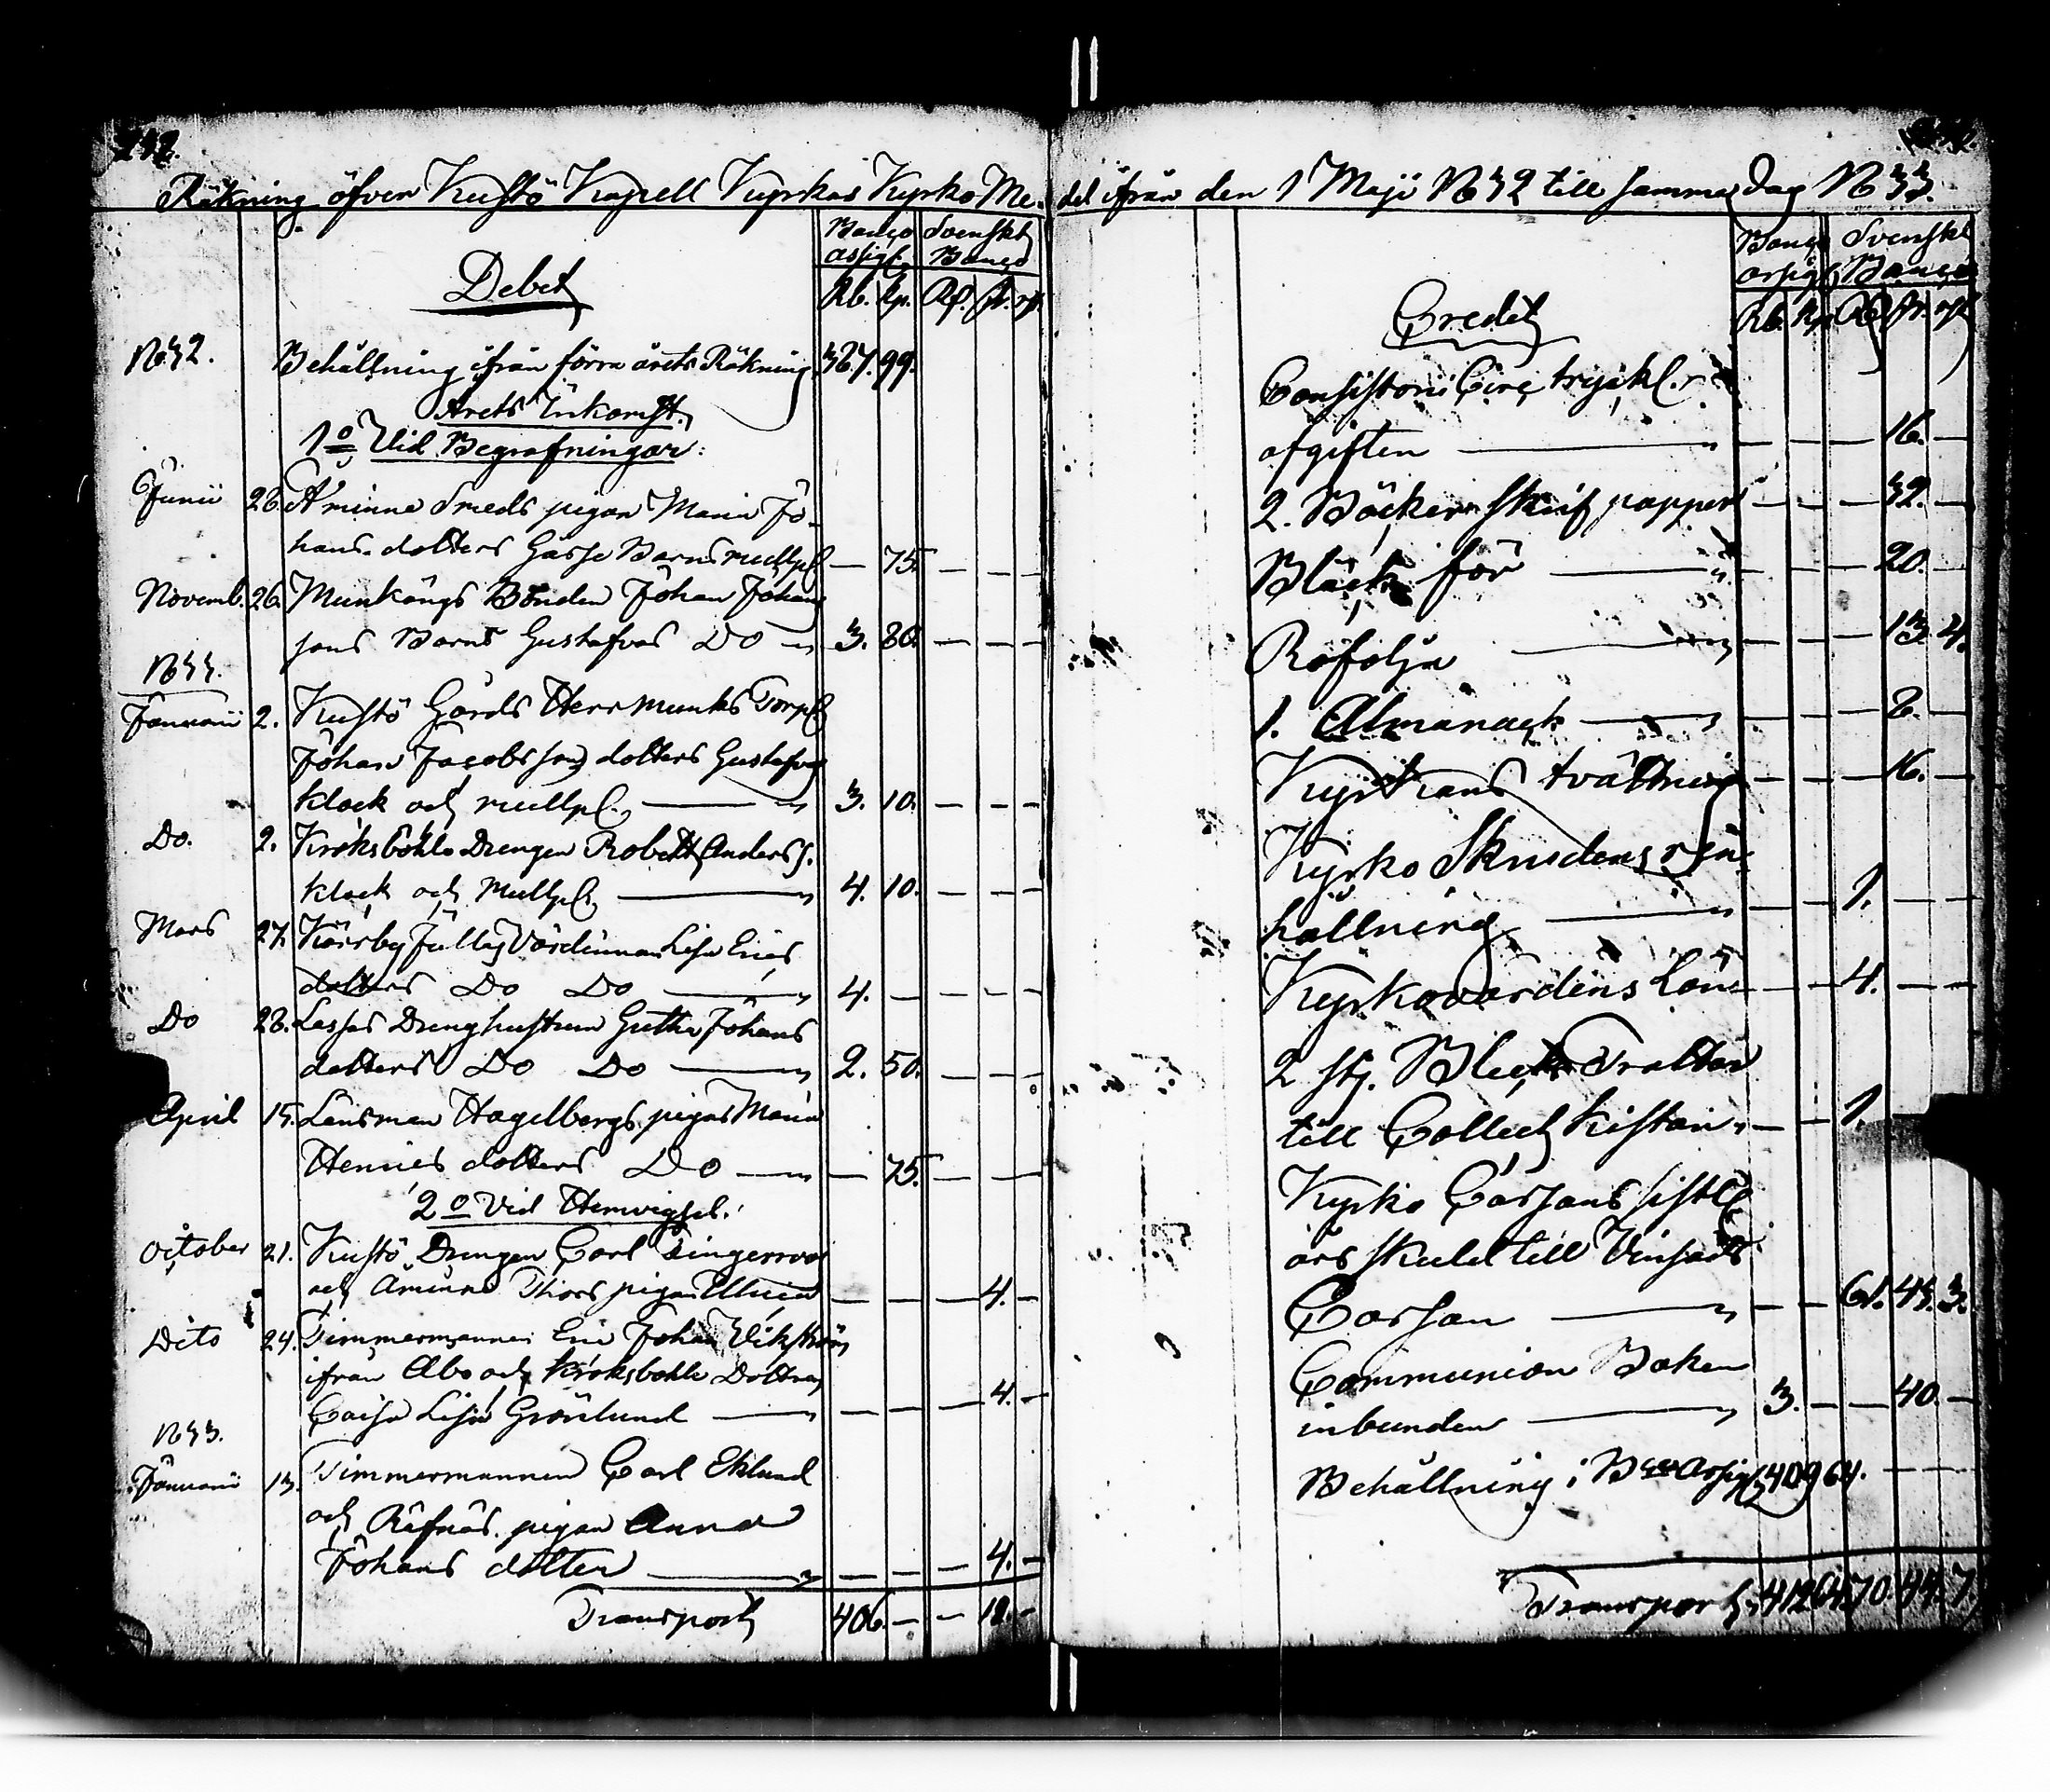 Räkning öfver Kustö Kapell Kyrkas Kyrko Me-
del ifrån den 1 Maji 1832 till samma Dag 1833.
Debet
Banco assigt. Svenskt Banco
Rb. kp. Rd. sk. rst.
1832. Behållning ifrån förra årets Räkning 387. 99.
Årets Inkomst.
1o Vid Begrafningar:
Junii 28. Åminne Smeds pigan Maria Jo-
hans dotters Gosse Barns mullpl. — 75. — — —
Novemb. 26. Munkängs Bonden Johan Johans
sons Barns Gustafvas Do — 3. 80. — — —
1833.
Januarii 2. Kustö Gårds Herr Munks Torp.
Johan Jacobssons dotters Gustafvas
klock och mullpl. — 3. 10. — — —
Do. 2. Kroksböhle Drengen Robert Anderss.
klock och Mullpl. — 4. 10. — — —
Mars 27. Kärrby Värdinnan Lisa Erics
dotters Do Do — 4. — — — —
Do 28. Lasses Dreng hustrun Gretha Johans
dotters Do Do — 2. 50. — — —
April 15. Länsman Hagelbergs pigas Maria
Henrics dotters Do — — 75. — — —
2o Vid Hemvigsel.
October 21. Kustö Drengen Carl Singerroos
och Åminne Thors pigan Ulrica — — — 4. —
Dito 24. Timmermannen Eric Johan Vikström
ifrån Åbo och Kroksböhle Dottren
Caisa Lisa Grönlund — — — — 4. —
1833.
Januarii 13. Timmermannen Carl Eklund
och Räfnäs pigan Anna
Johans dotter — — — — 4. —
Transport 406. — — 12. —
Credit
Banco assigt. Svenskt Banco
Rb. kp. Rd. sk. rst.
Consistorii Circ. tryckl.
afgiften — — — — 16. —
2. Böcker Skrif papper — — — 32. —
Bläck för — — — — 20. —
Rofolja — — — — 13. 4.
1. Almanack — — — — 8. —
Kyrkans tvättning — — — 16. —
Kyrko Skrudens ren
hållning — — — 1. — —
Kyrkovärdens Lön — — 4. — —
2 st. Bleck Trattar
till Collect kistan — — 1. — —
Kyrko Cassans sistl.
års skuld till Vinsäds
Cassan — — — 61. 43. 3.
Communion Boken
inbunden — 3. — — 40. —
Behållning i Bco Assigt. 409 64. — —
Transport 412 64. 70. 44. 7.